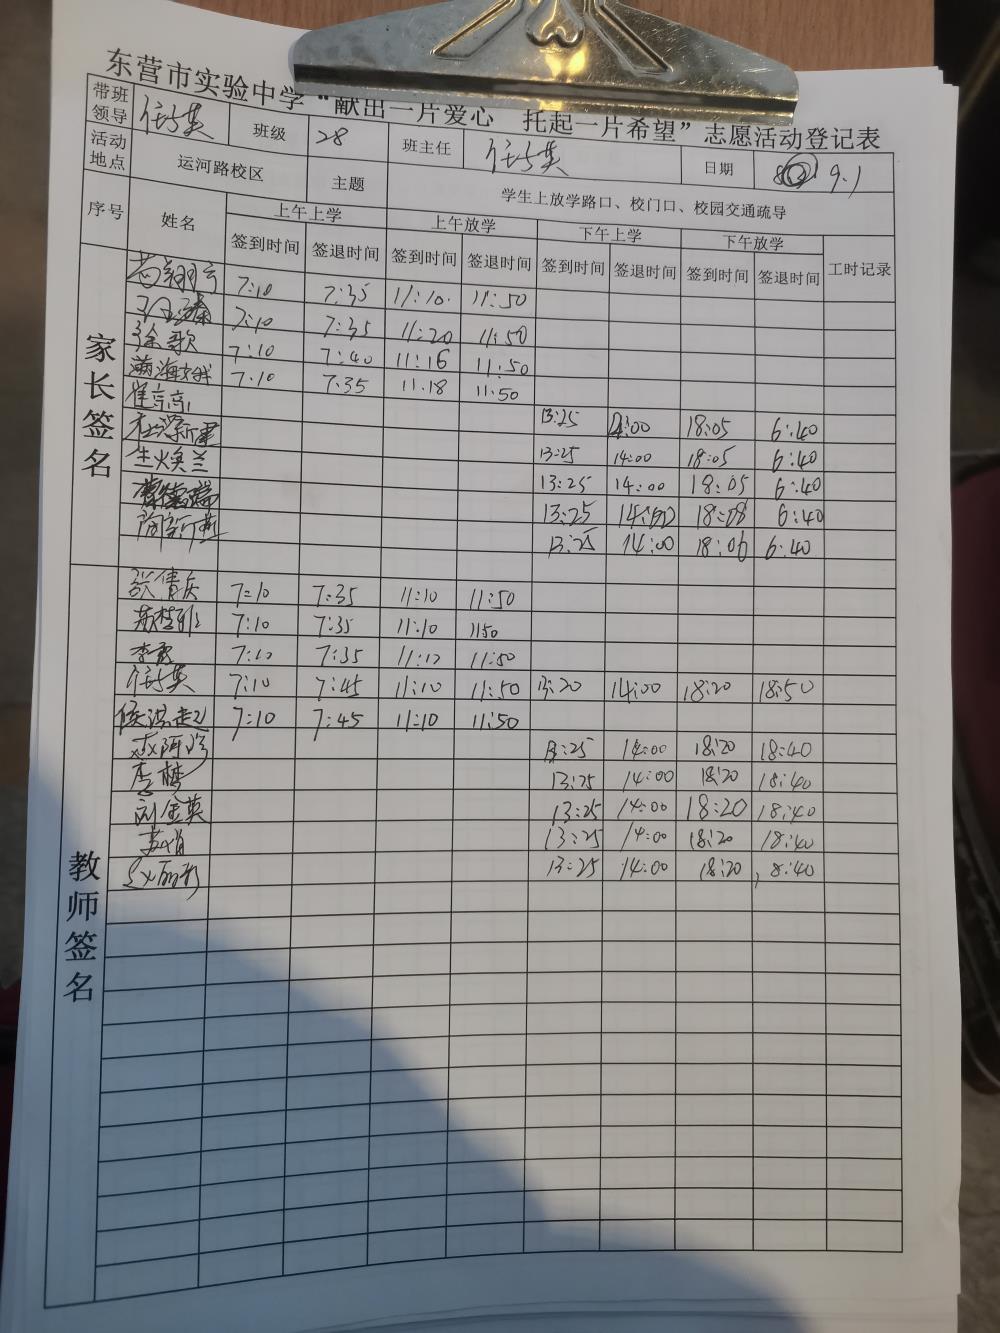 东营市实验中学“献出一片爱心 托起一片希望”志愿活动登记表
带班领导 班级 28 班主任 日期 9.1
活动地点 运河路校区 主题 学生上放学路口、校门口、校园交通疏导
序号 姓名 上午上学 上午放学 下午上学 下午放学 工时记录
签到时间 签退时间 签到时间 签退时间 签到时间 签退时间 签到时间 签退时间
家长签名
7:10 7:35 11:10. 11:50
7:10 7:35 11:20 11:50
徐歌 7:10 7:40 11:16 11:50
7.10 7.35 11.18 11:50
13:25 14:00 18:05 6:40
13:25 14:00 18:05 6:40
生焕兰 13:25 14:00 18:05 6:40
13:25 14:00 18:08 6:40
13:25 14:00 18:06 6:40
教师签名
张倩兵 7:10 7:35 11:10 11:50
7:10 7:35 11:10 1150
7:10 7:35 11:10 11:50
7:10 7:45 11:10 11:50 13:20 14:00 18:20 18:50
7:10 7:45 11:10 11:50
13:25 14:00 18:20 18:40
李梦 13:25 14:00 18:20 18:40
刘金英 13:25 14:00 18:20 18:40
13:25 14:00 18:20 18:40
13:25 14:00 18:20 18:40